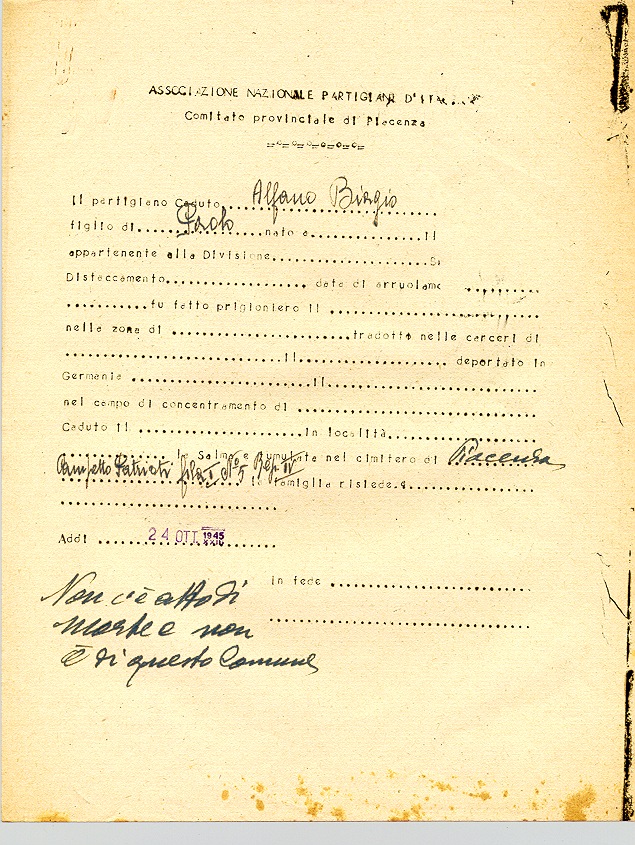 ASSOCIAZIONE NAZIONALE PARTIGIANI D'ITAL
Comitato provinciale di Piacenza
Il partigiano Caduto Alfano Biagio
figlio di Paolo nato a Il
appartenente alla Divisione
Distaccamento data di arruolame
fu fatto prigioniero il
nella zona di tradotto nelle carceri di
Il deportato in
Germania Il
nel campo di concentramento di
Caduto il in località
la Salma e tumulata nel cimitero di Piacenza
Campetto Patrioti fila I N° 5 Rep. IV la famiglia risiede a
Addì 24 OTT 1945
In fede
Non c'è atto di
morte e non
è di questo Comune